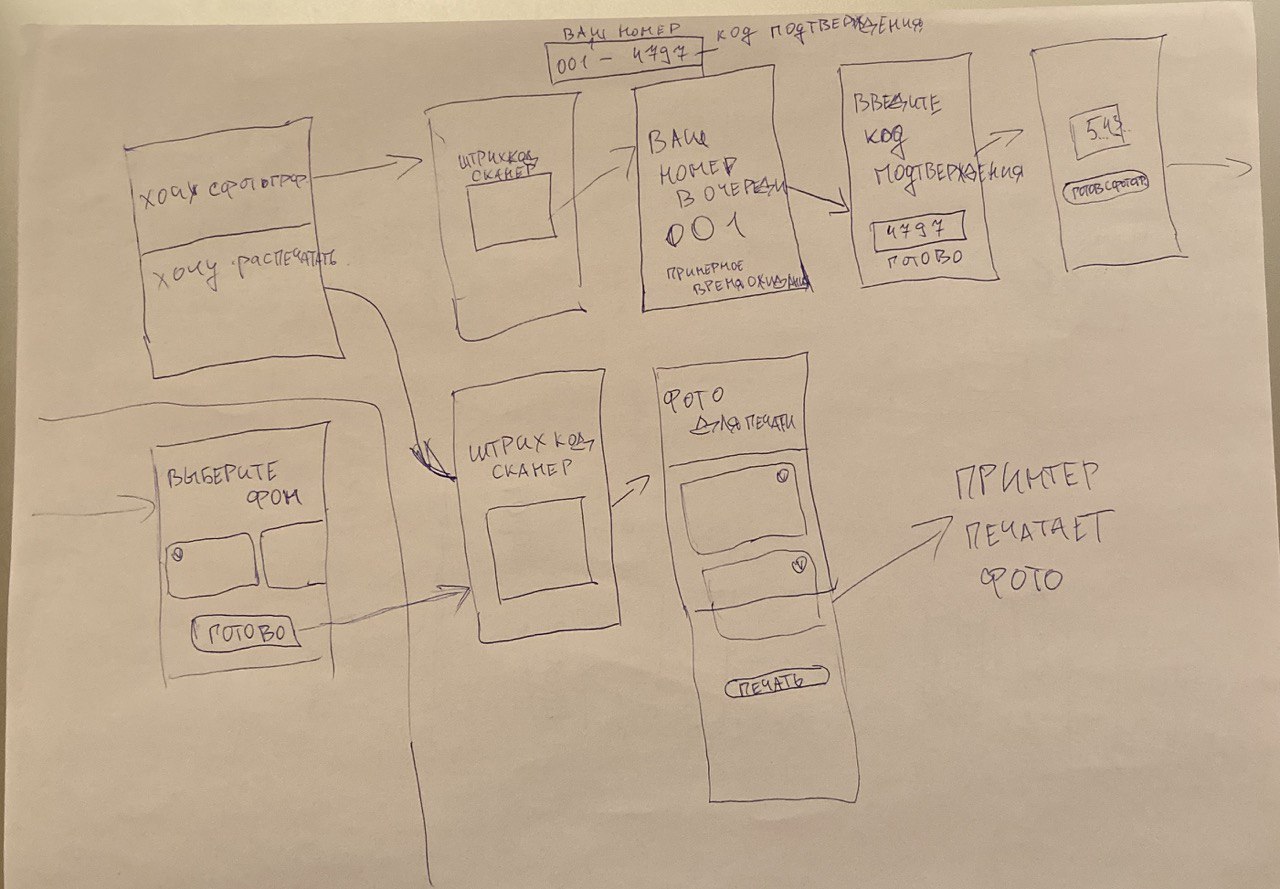 ВАШ НОМЕР
001 - 4797
КОД ПОДТВЕРЖДЕНИЯ
ХОЧУ СФОТОГРАФ.
ХОЧУ РАСПЕЧАТАТЬ
ШТРИХКОД
СКАНЕР
ВАШ
НОМЕР
В ОЧЕРЕДИ
001
ПРИМЕРНОЕ
ВРЕМЯ ОЖИДАНИЯ
ВВЕДИТЕ
КОД
ПОДТВЕРЖДЕНИЯ
4797
ГОТОВО
ВЫБЕРИТЕ
ФОН
ГОТОВО
ШТРИХ КОД
СКАНЕР
ФОТО
ДЛЯ ПЕЧАТИ
ПЕЧАТЬ
ПРИНТЕР
ПЕЧАТАЕТ
ФОТО